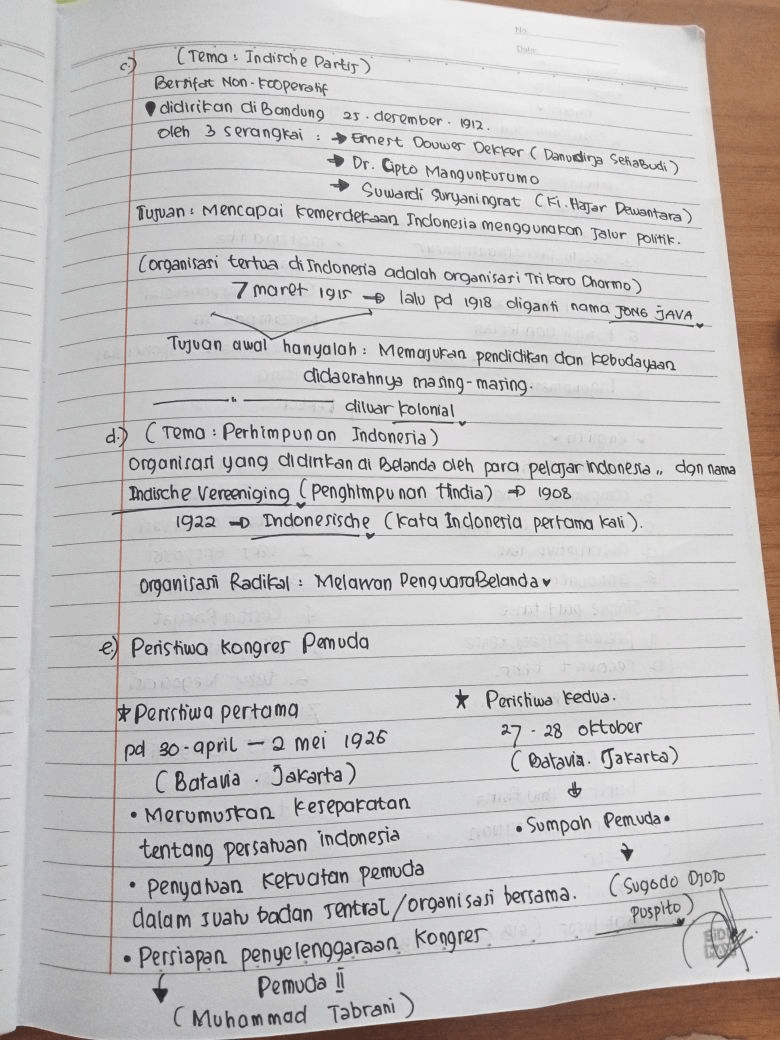 No.
Date:
c.) (Tema : Indische Partij)
Bersifat Non-Kooperatif
didirikan di Bandung 25. desember. 1912.
oleh 3 serangkai : → Ernest Douwes Dekker (Danurdirja Setiabudi)
→ Dr. Cipto Mangunkusumo
→ Suwardi Suryaningrat (Ki. Hajar Dewantara)
Tujuan : Mencapai kemerdekaan Indonesia menggunakan Jalur politik.
(organisasi tertua di Indonesia adalah organisasi Tri Koro Dharmo)
7 maret 1915 → lalu pd 1918 diganti nama JONG JAVA
Tujuan awal hanyalah : Memajukan pendidikan dan kebudayaan
didaerahnya masing-masing.
——— " ——— diluar kolonial
d.) (Tema : Perhimpunan Indonesia)
organisasi yang didirikan di Belanda oleh para pelajar indonesia,, dgn nama
Indische Vereeniging (Penghimpunan Hindia) → 1908
1922 → Indonesische (Kata Indonesia pertama kali).
organisasi Radikal : Melawan Penguasa Belanda
e.) Peristiwa Kongres Pemuda
★ Peristiwa pertama
pd 30-april - 2 mei 1926
(Batavia. Jakarta)
• Merumuskan kesepakatan
tentang persatuan indonesia
• Penyatuan Kekuatan pemuda
dalam suatu badan sentral/organisasi bersama.
• Persiapan penyelenggaraan Kongres
Pemuda II
(Muhammad Tabrani)
★ Peristiwa Kedua.
27-28 oktober
(Batavia. Jakarta)
• Sumpah Pemuda •
(Sugodo Djojo
puspito)